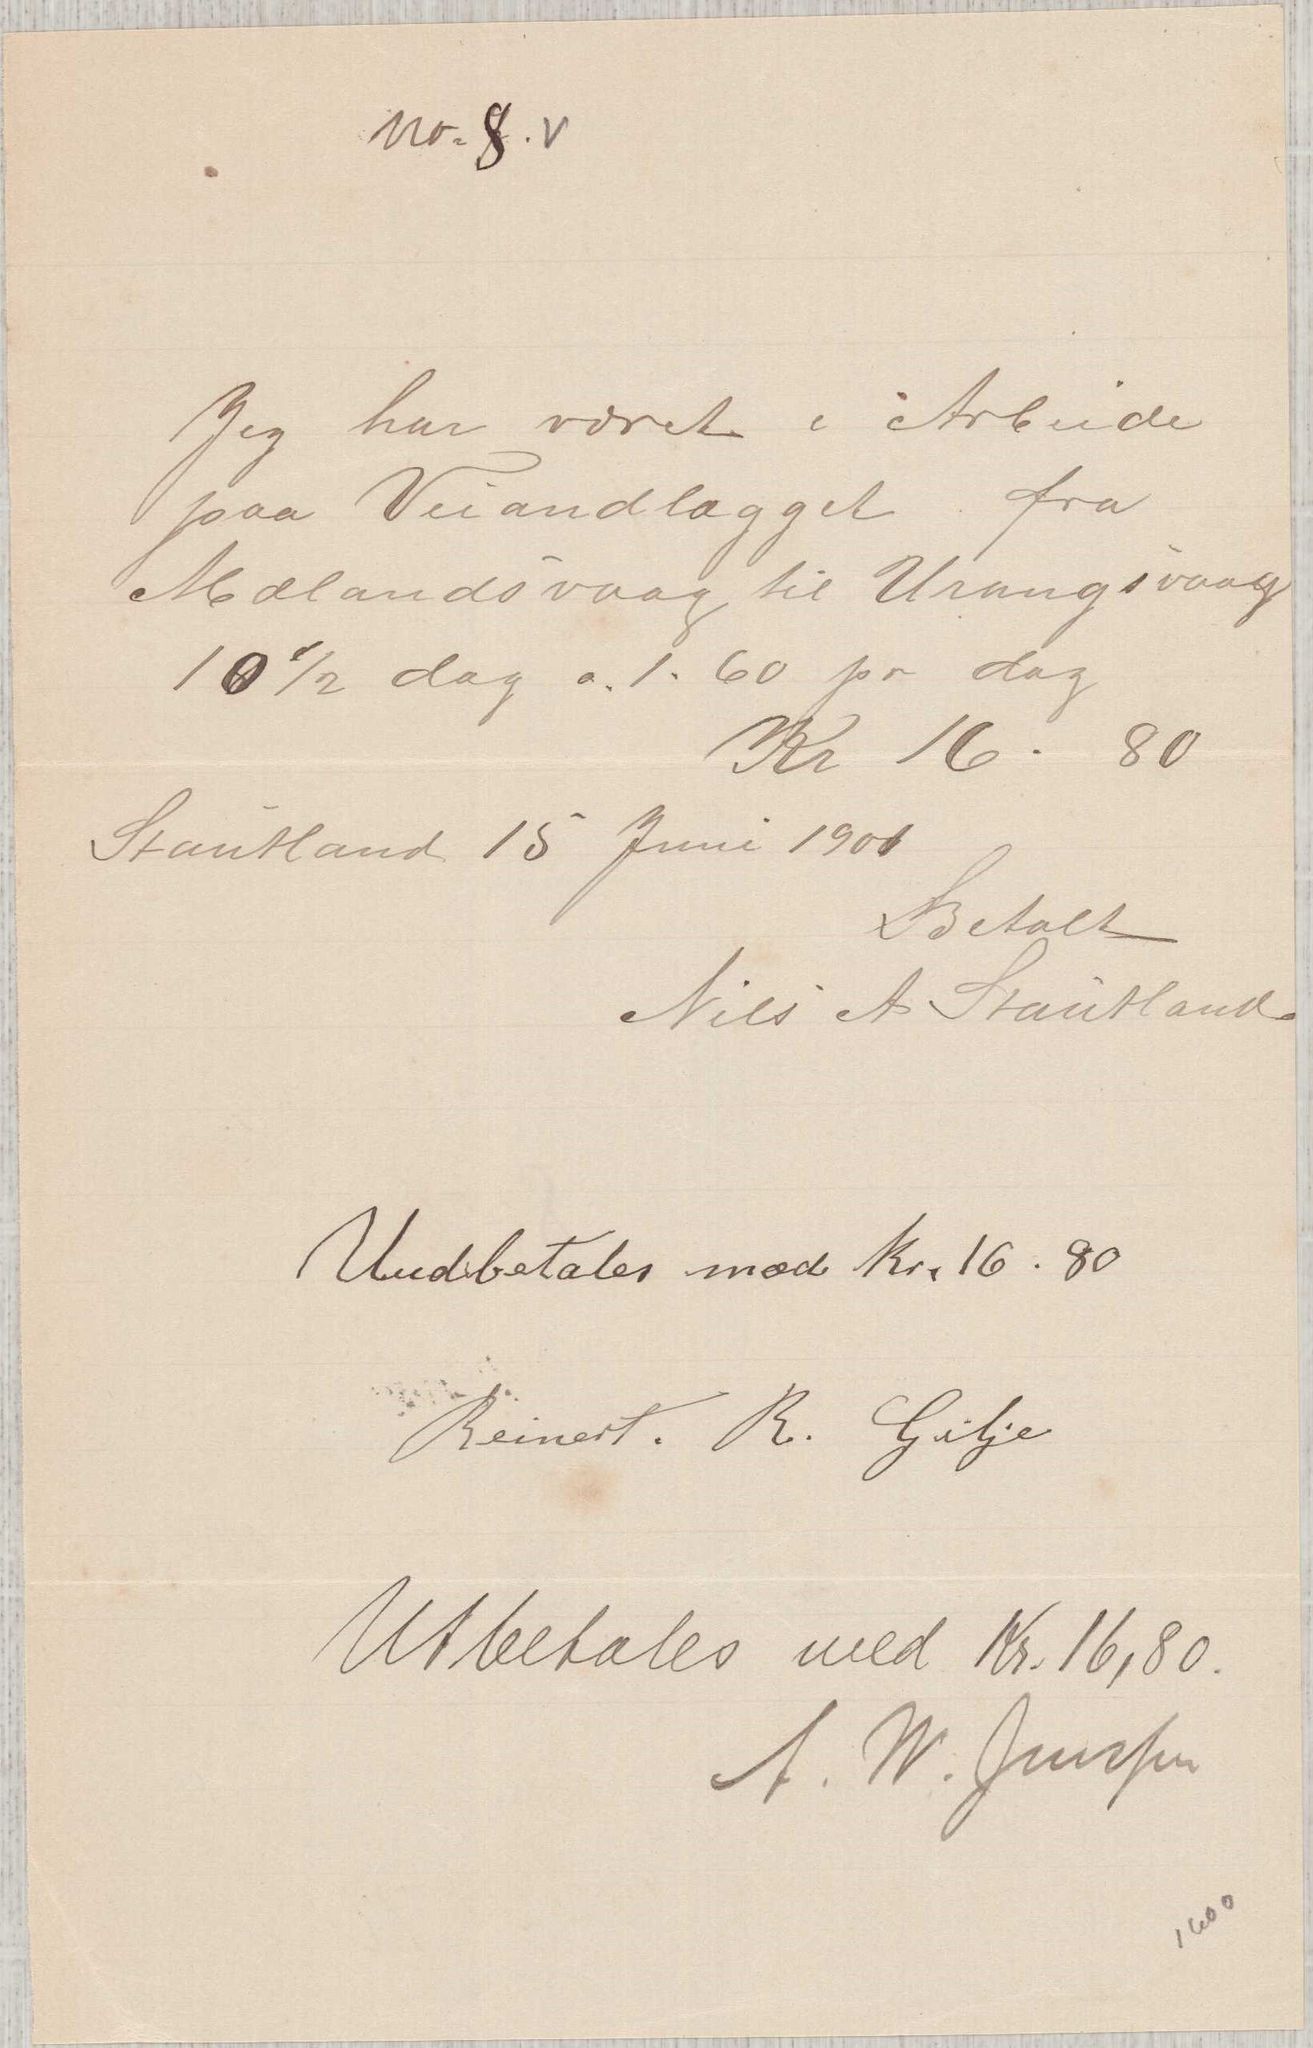 No. 8. v
Jeg har været i Arbeide
paa Veiandlægget fra
Mælandsvaag til Urangsvaag
10 1/2 dag a. 1. 60 pr dag
Kr 16. 80
Stautland 15 Juni 1901
Betalt
Nils A Stautland
Uudbetales med Kr. 16. 80
Reinert. R. Gilje
Utbetales med Kr. 16,80.
A. W.
1600